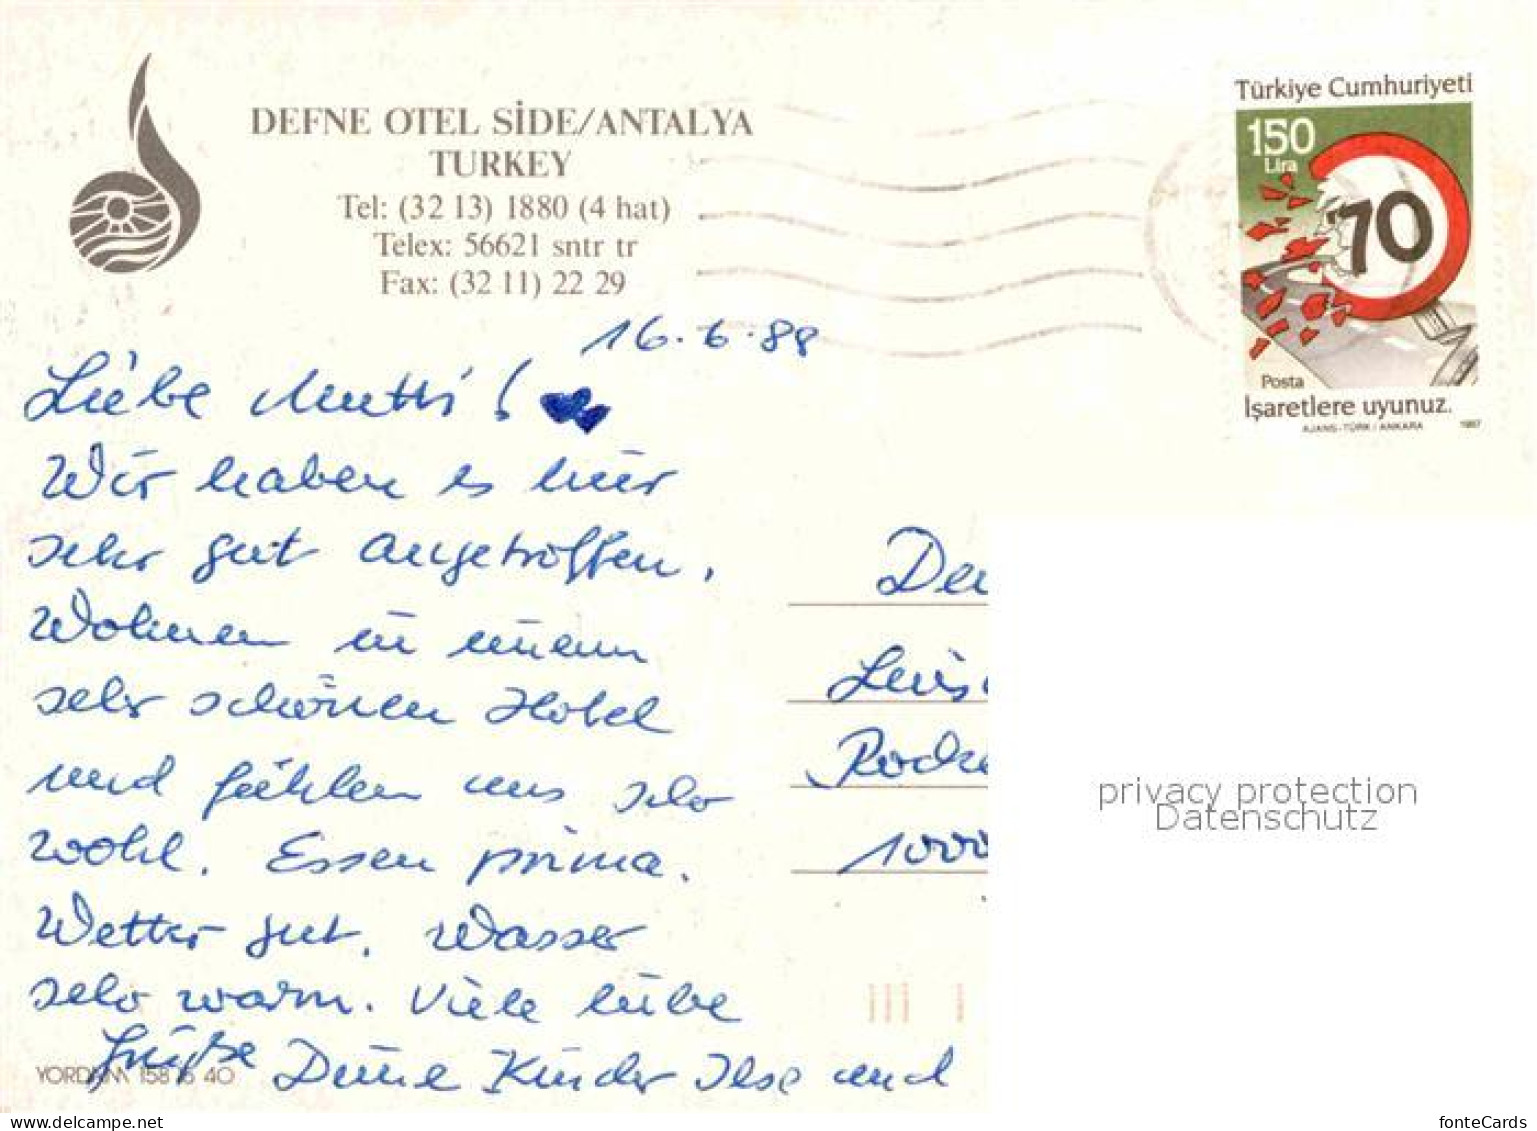 DEFNE OTEL SİDE/ANTALYA
TURKEY
Tel: (32 13) 1880 (4 hat)
Telex: 56621 sntr tr
Fax: (32 11) 22 29
Türkiye Cumhuriyeti
150
Lira
70
Posta
İşaretlere uyunuz.
AJANS-TÜRK / ANKARA 1987
16.6.88
Liebe Mutti!
Wir haben es hier
sehr gut angetroffen.
Wohnen in einem
sehr schönen Hotel
und fühlen uns sehr
wohl. Essen prima.
Wetter gut. Wasser
sehr warm. Viele liebe
Grüße Deine Kinder Ilse und
YORDAM 158 16 40
1000
privacy protection
Datenschutz
fonteCards